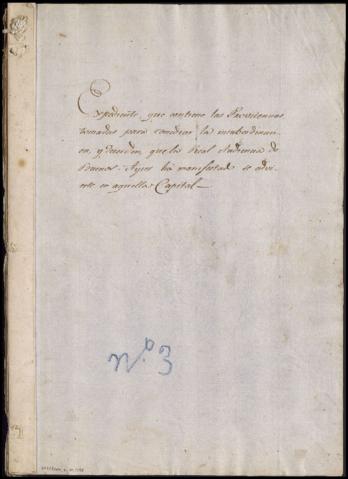 Expediente que contiene las Providencias
tomadas para conocer la insubordinaci-
on, y desorden, que la Real Audiencia de
Buenos Ayres ha manifestado se advi-
erte en aquella Capital
Nº 3